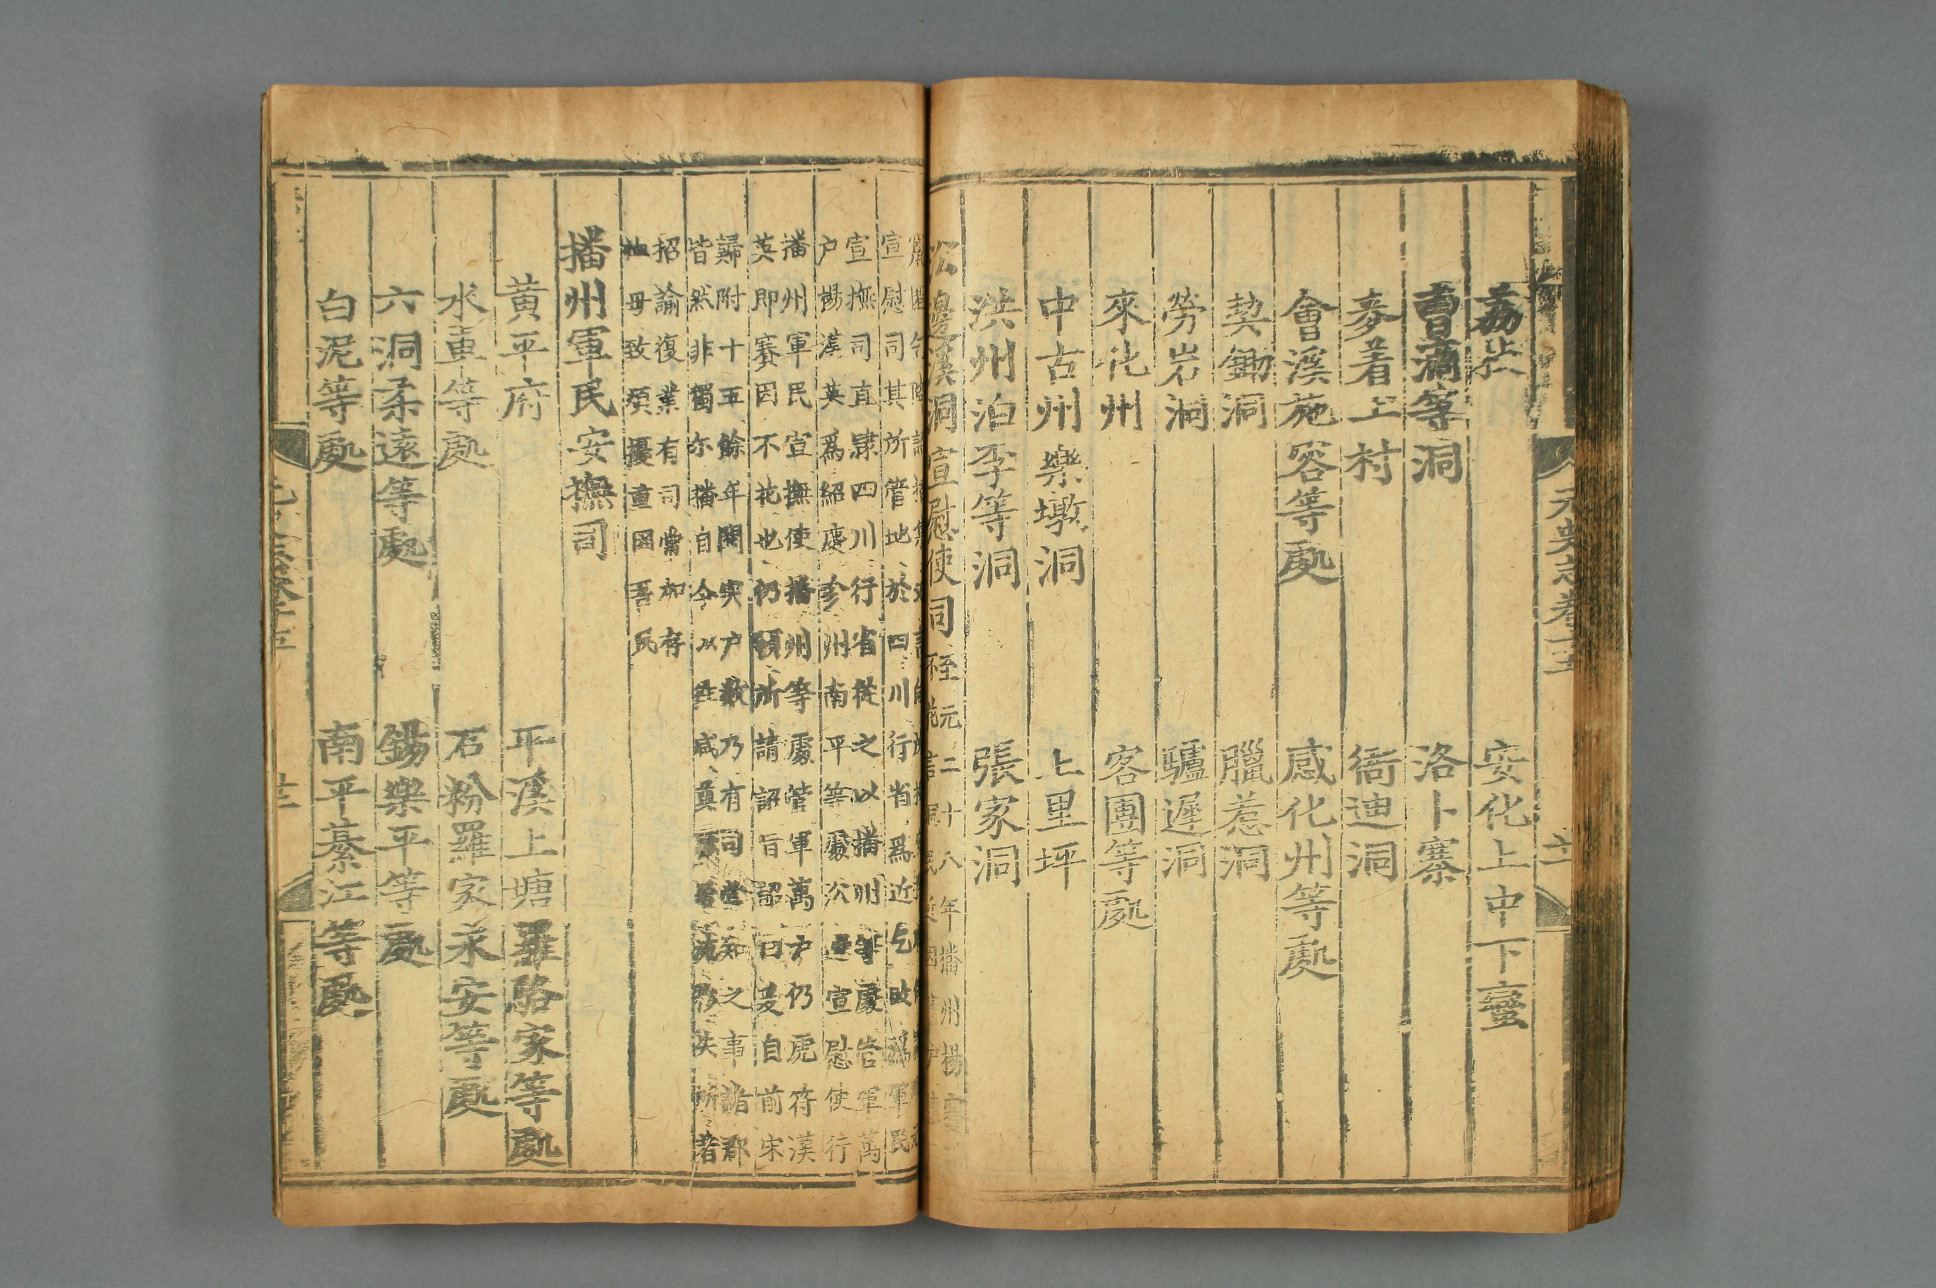 元史志卷十五
荔枝　安化上中下蠻
曹滴等洞　洛卜寨
麥着土村　衙迪洞
會溪施容等處　感化州等處
契鋤洞　臘惹洞
勞岩洞　驢遲洞
來化州　客團等處
中古州樂墩洞　上里坪
洪州泊李等洞　張家洞
沿邊溪洞宣慰使司
至元二十八年播州楊賽
宣慰司其所管地於四川行省爲近乞改爲軍民
宣撫司直隸四川行省從之以播州等處管軍萬
户楊漢英爲紹慶珍州南平等處沿邊宣慰使行
播州軍民宣撫使播州等處管軍萬户仍虎符漢
英即賽因不花也仍頒所請詔旨詔曰爰自前宋
歸附十五餘年閱實户數乃有司當知之事諸郡
皆然非獨尓播自今以
招諭復業有司常加存
恤毋致煩擾重困吾民
播州軍民安撫司
黄平府　平溪上塘羅駱家等處
水軍等處　石粉羅家永安等處
六洞柔遠等處　錫樂平等處
白泥等處　南平綦江等處